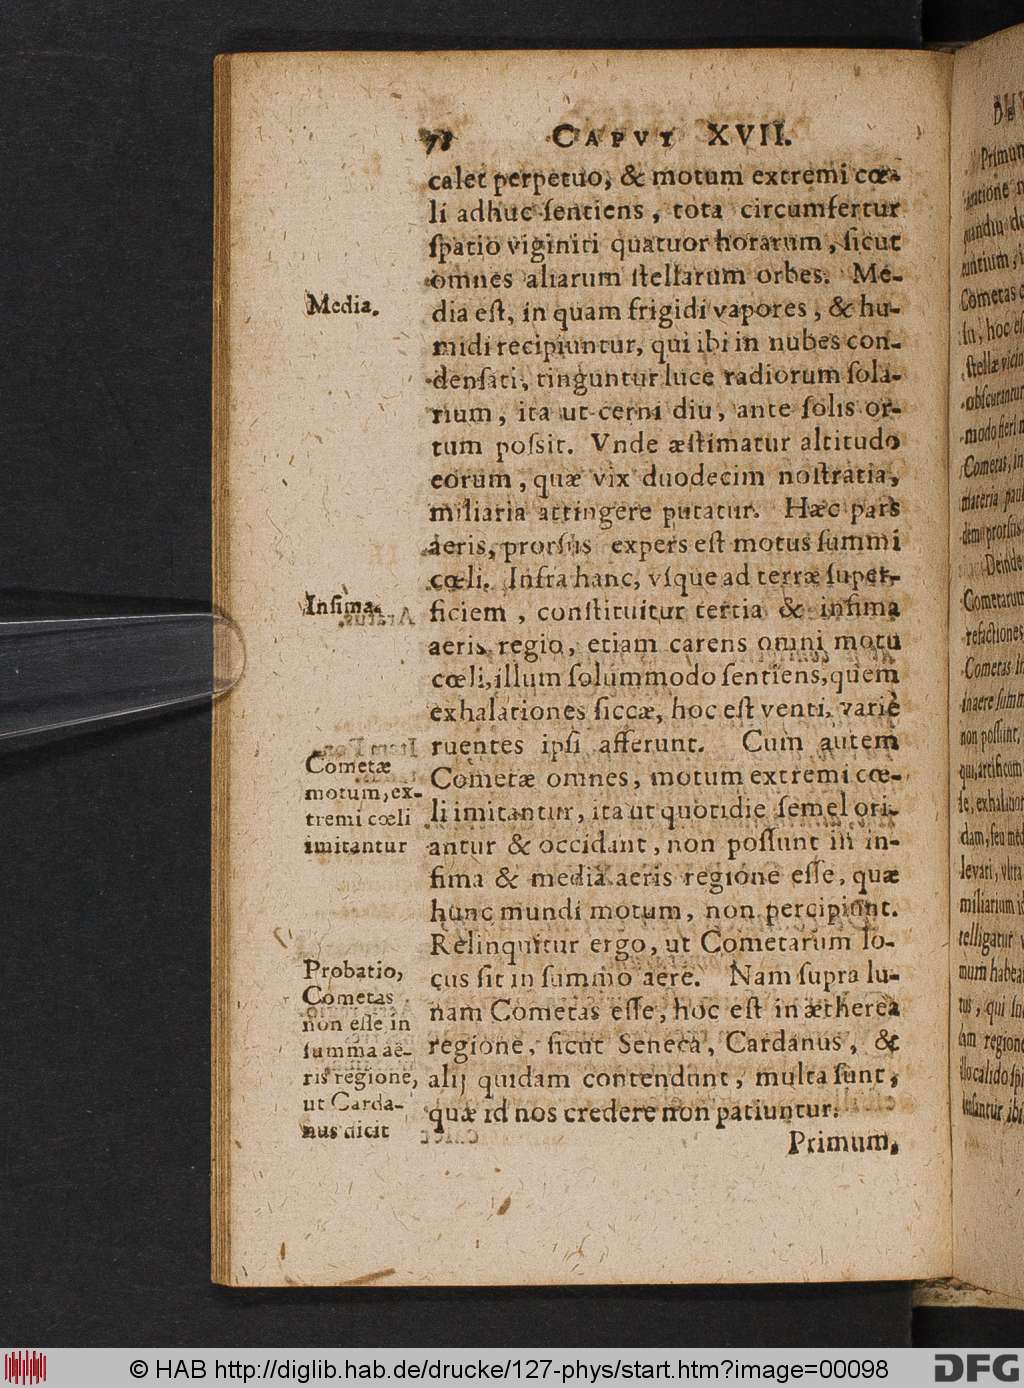 78 CAPVT XVII.
calet perpetuo, & motum extremi cœ-
li adhuc ſentiens, tota circumfertur
ſpatio viginiti quatuor horarum, ſicut
omnes aliarum ſtellarum orbes. Me-
Media.
dia eſt, in quam frigidi vapores, & hu-
midi recipiuntur, qui ibi in nubes con-
denſati, tinguntur luce radiorum ſola-
rium, ita ut cerni diu, ante ſolis or-
tum poſsit. Vnde æſtimatur altitudo
eorum, quæ vix duodecim noſtratia,
miliaria attingere putatur. Hæc pars
aeris, prorſus expers eſt motus ſummi
cœli. Infra hanc, vſque ad terræ ſuper-
Infima.
ficiem, conſtituitur tertia & infima
aeris regio, etiam carens omni motu
cœli, illum ſolummodo ſentiens, quem
exhalationes ſiccæ, hoc eſt venti, variè
ruentes ipſi afferunt. Cum autem
Cometæ
motum, ex-
tremi cœli
imitantur
Cometæ omnes, motum extremi cœ-
li imitantur, ita ut quotidie ſemel ori-
antur & occidant, non poſſunt in in-
fima & media aeris regione eſſe, quæ
hunc mundi motum, non percipiunt.
Relinquitur ergo, ut Cometarum lo-
Probatio,
Cometas
non eſſe in
ſumma ae-
ris regione,
ut Carda-
nus dicit
cus ſit in ſummo aere. Nam ſupra lu-
nam Cometas eſſe, hoc eſt in ætherea
regione, ſicut Seneca, Cardanus, &
alij quidam contendunt, multa ſunt,
quæ id nos credere non patiuntur.
Primum,
Primum
Cometas
ſtellæ
obſcurantur
modo fieri
Cometas, in
materia
Deinde
Cometarum
Cometas
non poſſunt,
levati, ultra
miliarium
telligatur
mum habea
tus, qui
regione
© HAB http://diglib.hab.de/drucke/127-phys/start.htm?image=00098
DFG